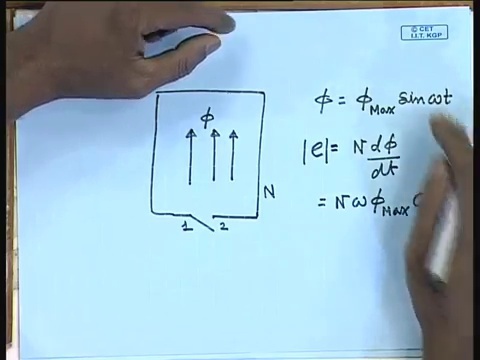 © CET
I.I.T. KGP
ϕ
ϕ = ϕ_Max sin ωt
|e| = N dϕ/dt
N
= N ω ϕ_Max
1 2